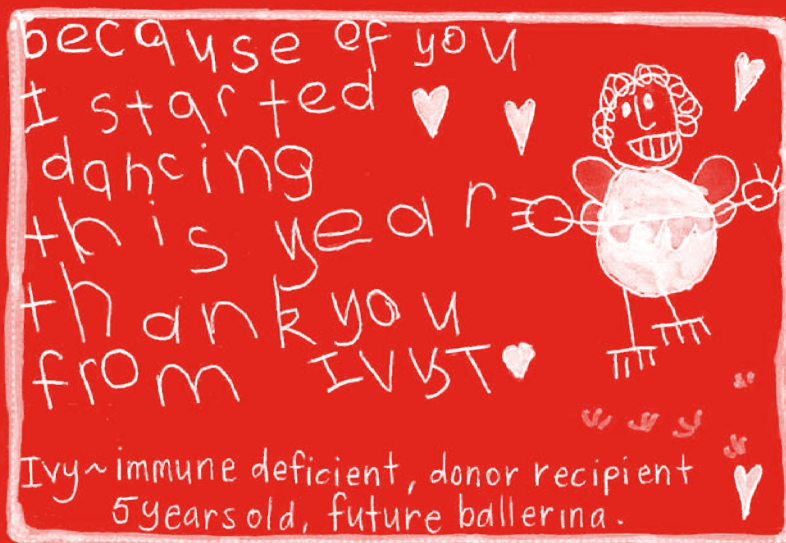 because of you
I started
dancing
this year
thank you
from IVYJ
Ivy~immune deficient, donor recipient
5 years old, future ballerina.